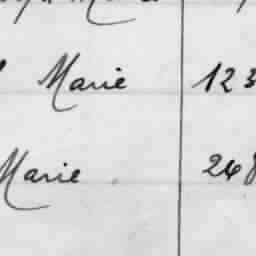 Marie 123
Marie 248